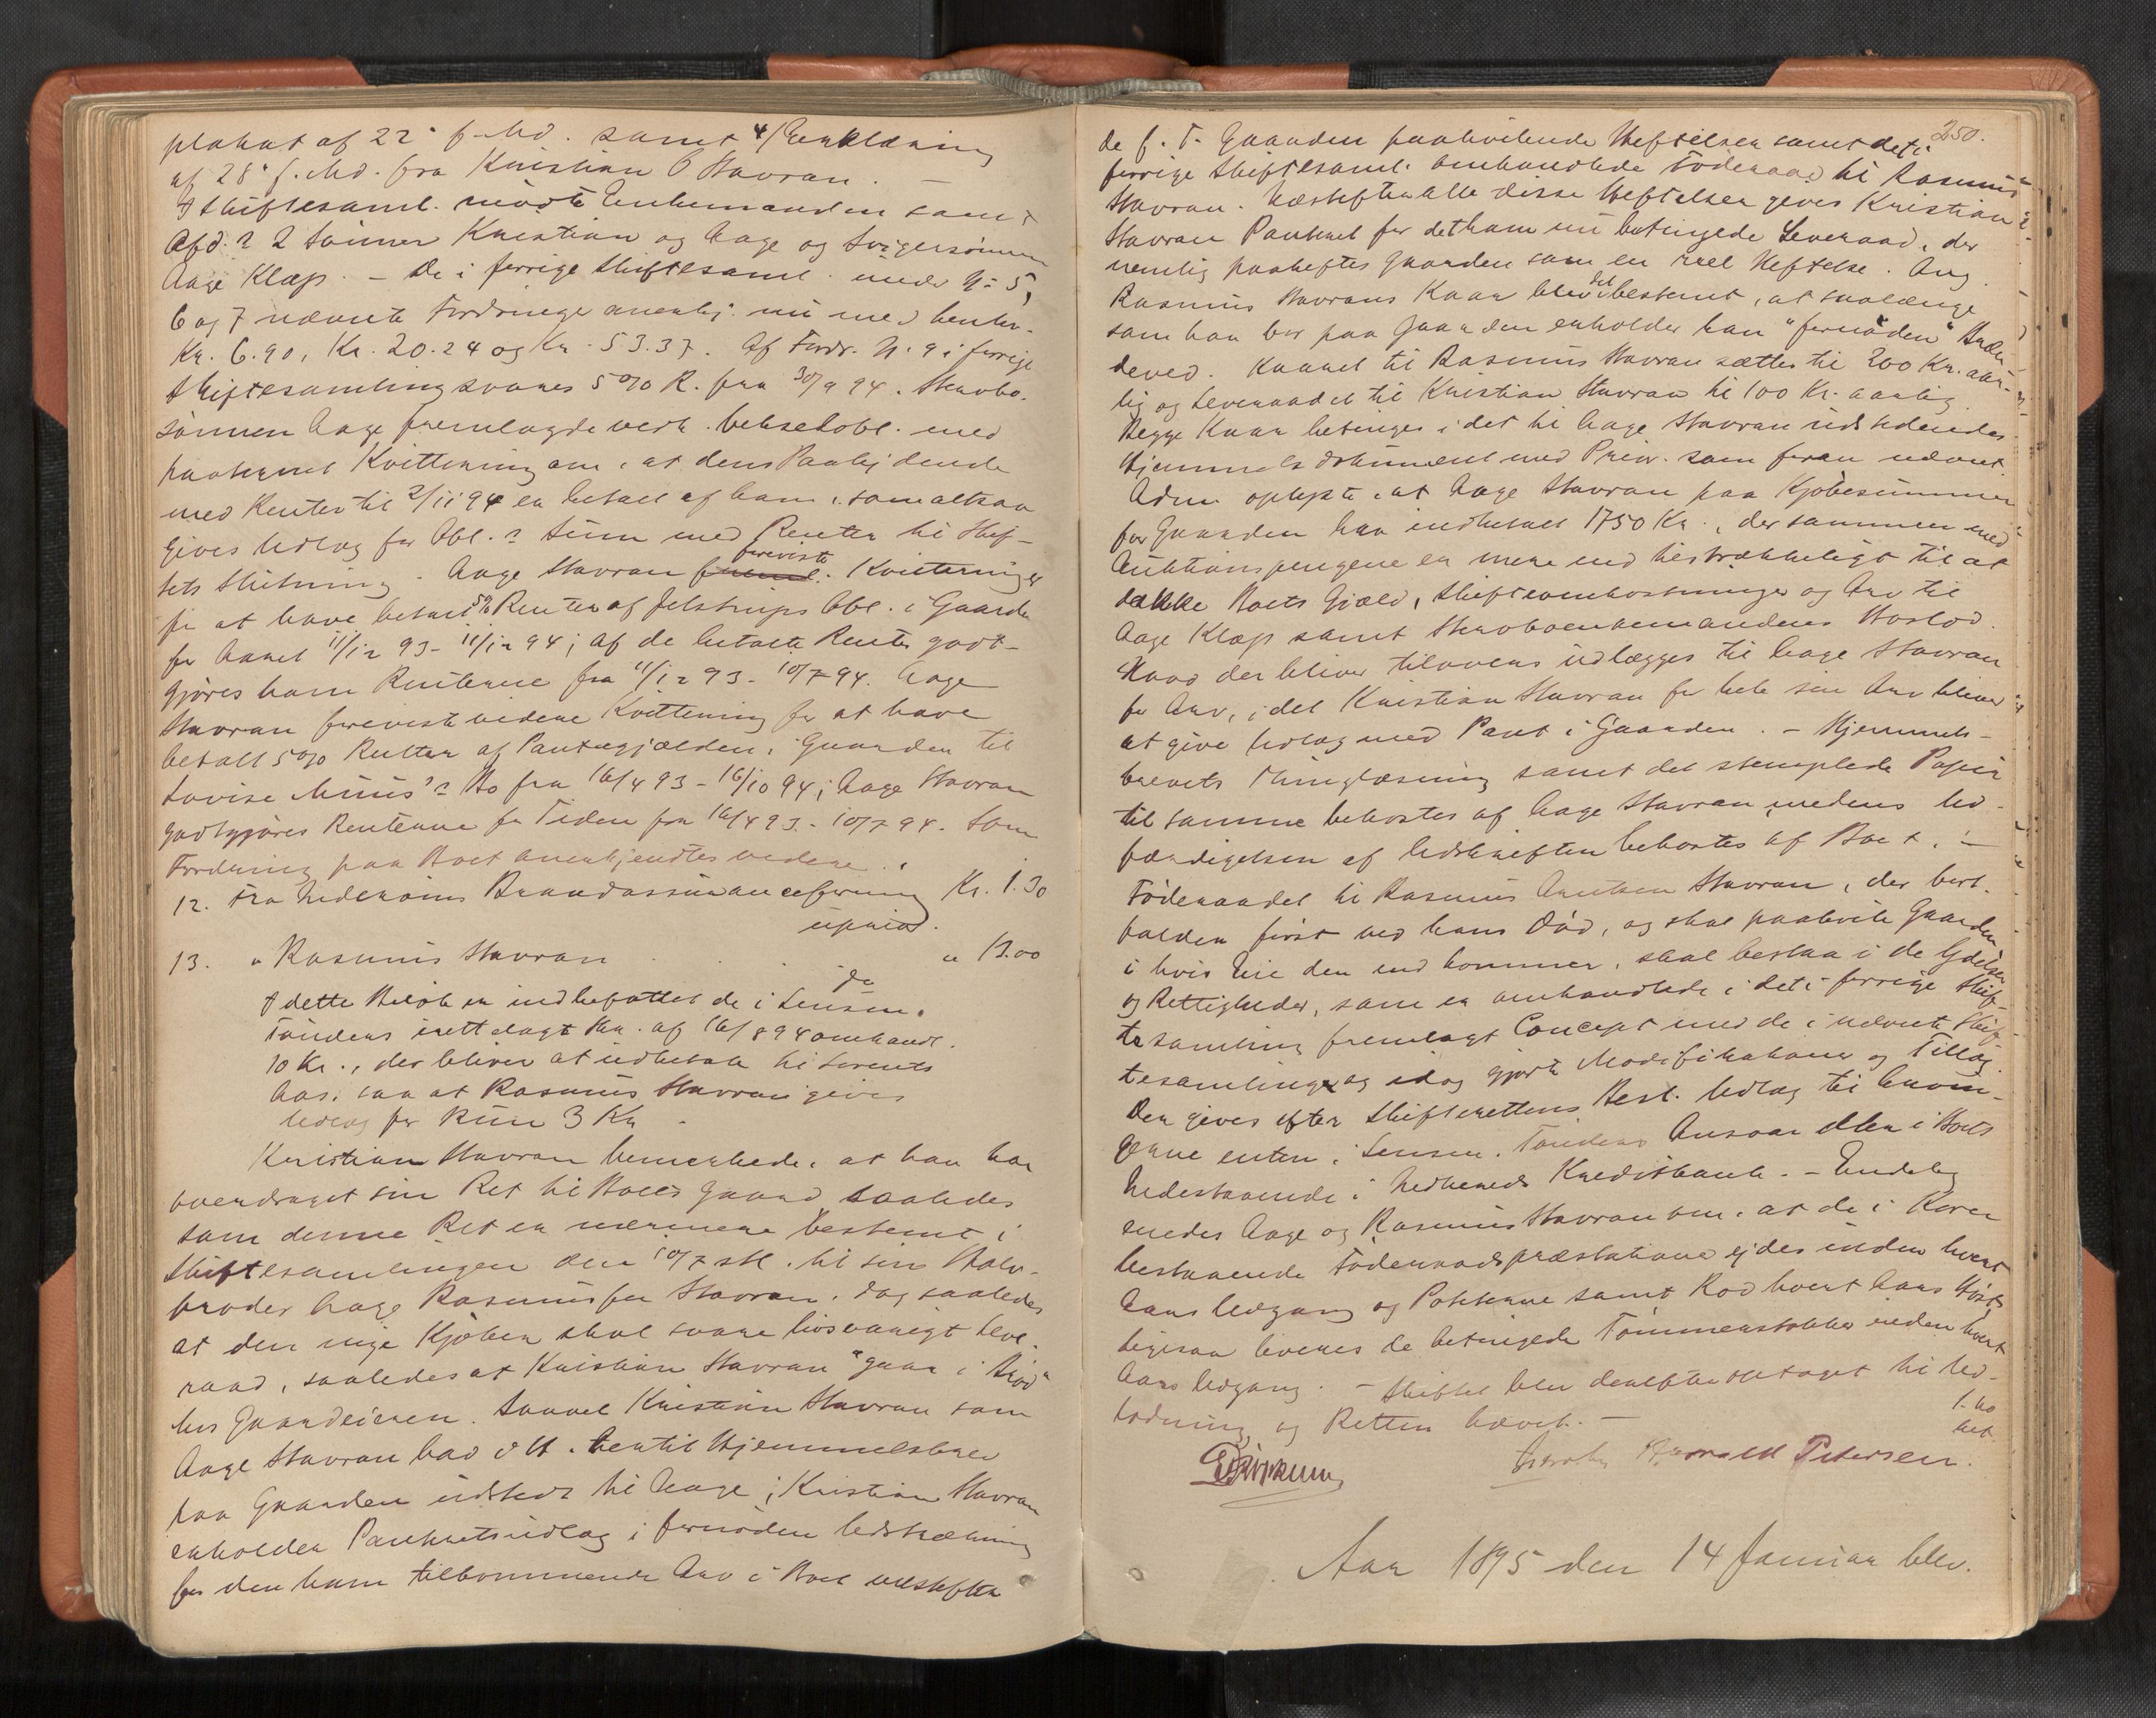 plakat af 22' f. Md. samt 4/ Erklæring
af 28' f. Md. fra Kristian O Stavran. —
I Skiftesaml. mødte Enkemanden samt
Afd.s 2 Sønner Kristian og Aage og Svigersønnen
Aage Klæp. — De i forrige Skiftesaml. under No 5,
6 og 7 nævnte Fordringer anerkj. nu med henhv.
Kr. 6.90, Kr. 20.24 og Kr. 53.37. Af Fordr. No. 9 i forrige
Skiftesamling svares 5% R. fra 30/9 94. Stervbo-
sønnen Aage fremlagde vedk. Vekselobl. med
paategnet Kvittering om, at dens Paalydende
med Renter til 2/11 94 er betalt af ham, som altsaa
gives Udlæg for Obl.s Sum med Renter til Skif-
tets Slutning. Aage Stavran foreviste Kvitteringer
for at have betalt 5% Renter af Jelstrups Obl. i Gaarden
for Aaret 11/12 93 - 11/12 94; af de betalte Renter godt-
gjøres ham Renterne fra 11/12 93 - 10/7 94. Aage
Stavran foreviste videre Kvittering for at have
betalt 5% Renter af Pantegjælden i Gaarden til
Lovise Muus's Bo fra 16/4 93 - 16/10 94; Aage Stavran
godtgjøres Renterne for Tiden fra 16/4 93 - 10/7 94. Som
Fordring paa Boet anerkjendtes videre:
12. Fra Brandassuranceforening Kr. 1.30
uprior.
13. " Rasmus Stavran " 13.00
I dette Beløb er indbefattet de i Lensm.
Tøndens irettelagt Skr. af 16/8 94 omhandl.
10 Kr., der bliver at udbetale til Lorents
Aas, saa at Rasmus Stavran gives
Udlæg for kun 3 Kr.
Kristian Stavran bemærkede, at han har
overdraget sin Ret til Boets Gaard saaledes
som denne Ret er nærmere bestemt i
Skiftesamlingen den 10/7 sidstl. til sin Halv-
broder Aage Rasmussen Stavran, dog saaledes
at den nye Kjøber skal svare livsvarigt Leve-
raad, saaledes at Kristian Stavran "gaar i Brød"
hos Gaardeieren. Saavel Kristian Stavran som
Aage Stavran bad i H. hertil Hjemmelsbrev
paa Gaarden udstedt til Aage; Kristian Stavran
erholder Panteretsudlæg i fornøden Udstrækning
for den ham tilkommende Arv i Boet næstefter
250.
de f. T. Gaarden paahvilende Heftelser samt det i
forrige Skiftesaml. omhandlede Føderaad til Rasmus
Stavran. Næstefter alle disse Heftelser gives Kristian
Stavran Panteret for det ham nu betingede Leveraad, der
nemlig paaheftes Gaarden som en reel Heftelse. Ang.
Rasmus Stavrans Kaar blev det bestemt, at saalænge
som han bor paa Gaarden erholder han "fornøden" Bræn-
deved. Kaaret til Rasmus Stavran sættes til 200 Kr. aar-
lig og Leveraadet til Kristian Stavran til 100 Kr. aarlig.
Begge Kaar betinges i det til Aage Stavran udstedendes
Hjemmelsdokument med Prior. som foran nævnt.
Adm. oplyste, at Aage Stavran paa Kjøbesummen
for Gaarden har indbetalt 1750 Kr., der sammen med
Auktionspengene er mere end tilstrækkeligt til at
dække Boets Gjæld, Skifteomkostninger og Arv til
Aage Klæp samt Stervboenkemandens Boslod.
Hvad der bliver tilovers udlægges til Aage Stavran
for Arv, idet Kristian Stavran for hele sin Arv bliver
at give Udlæg med Pant i Gaarden. — Hjemmels-
brevets Thinglæsning samt det stemplede Papir
til samme bekostes af Aage Stavran, medens Ud-
færdigelsen af Udskriften bekostes af Boet. —
Føderaadet til Rasmus Arntsen Stavran, der bort-
falder først ved hans Død, og skal paahvile Gaarden
i hvis Eie den end kommer, skal bestaa i de Ydelser
og Rettigheder, som er omhandlede i det i forrige Skif-
tesamling fremlagt Concept med de i nævnte Skif-
tesamling og idag gjorte Modifikationer og Tillæg.
Der gives efter Skifterettens Best. Udlæg til Arvin-
gerne enten i Lensm. Tøndens Ansvar eller i Boets
Indestaaende i Nedhereds Kreditbank. — Endelig
enedes Aage og Rasmus Stavran om, at de i Korn
bestaaende Føderaadspræstationer ydes inden hvert
Aars Udgang og Potterne samt Kod hvert Aars Høst,
ligesaa leveres de betingede Tømmerstokke inden hvert
Aars Udgang. — Skiftet blev derefter optaget til Ud-
lodning og Retten hævet. —
Harald Petersen.
Aar 1895 den 14 Januar blev.